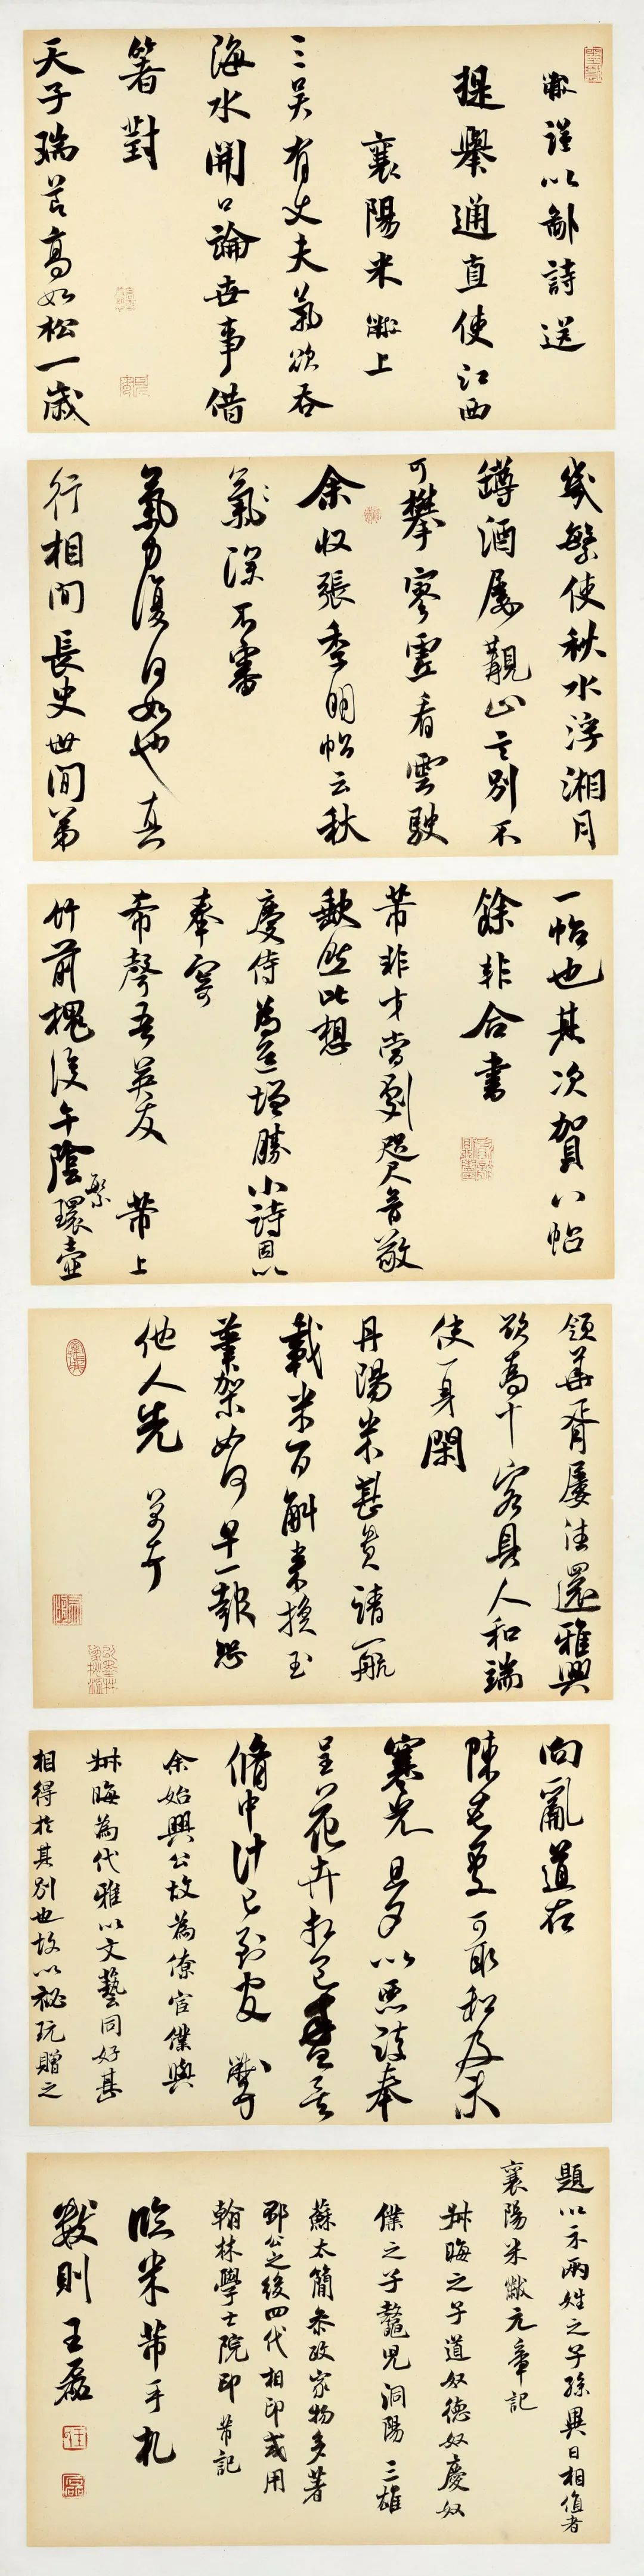 黻謹以鄙詩送
提舉通直使江西
襄陽米黻上
三吳有丈夫氣欲吞
海水開口論世事借
箸對
天子瑞節高如松一歲
歲繁使秋水浮湘月
罇酒屢觀山言別不
可攀寥雲看雲駛
余收張季明帖云秋
氣深不審
氣力復何如也真
行相間長史世間第
一帖也其次賀八帖
餘非合書
芾非才當劇咫尺音敬
歉然此想
慶侍為道增勝小詩因以
奉寄
希聲吾英友 芾上
竹前槐後午陰繁
環壺
領華胥屢法還雅興
欲為十客具人和端
使一身閑
丹陽米甚貴請一航
載米百斛來換玉
筆架如何早一報恐
他人先 芾頓首
向亂道在
陳十七處可取租及未
寒光旦夕以惡詩奉
呈花卉想已盡
脩中計已到官 黻
余始興公故為僚宦僕與
叔晦為代雅以文藝同好甚
相得於其別也故以祕玩贈之
題以示兩姓之子孫異日相值者
襄陽米黻元章記
叔晦之子道奴德奴慶奴
僕之子鼇兒洞陽三雄
蘇太簡參政家物多著
邳公之後四代相印或用
翰林學士院印 芾記
臨米芾手札
數則 王磊